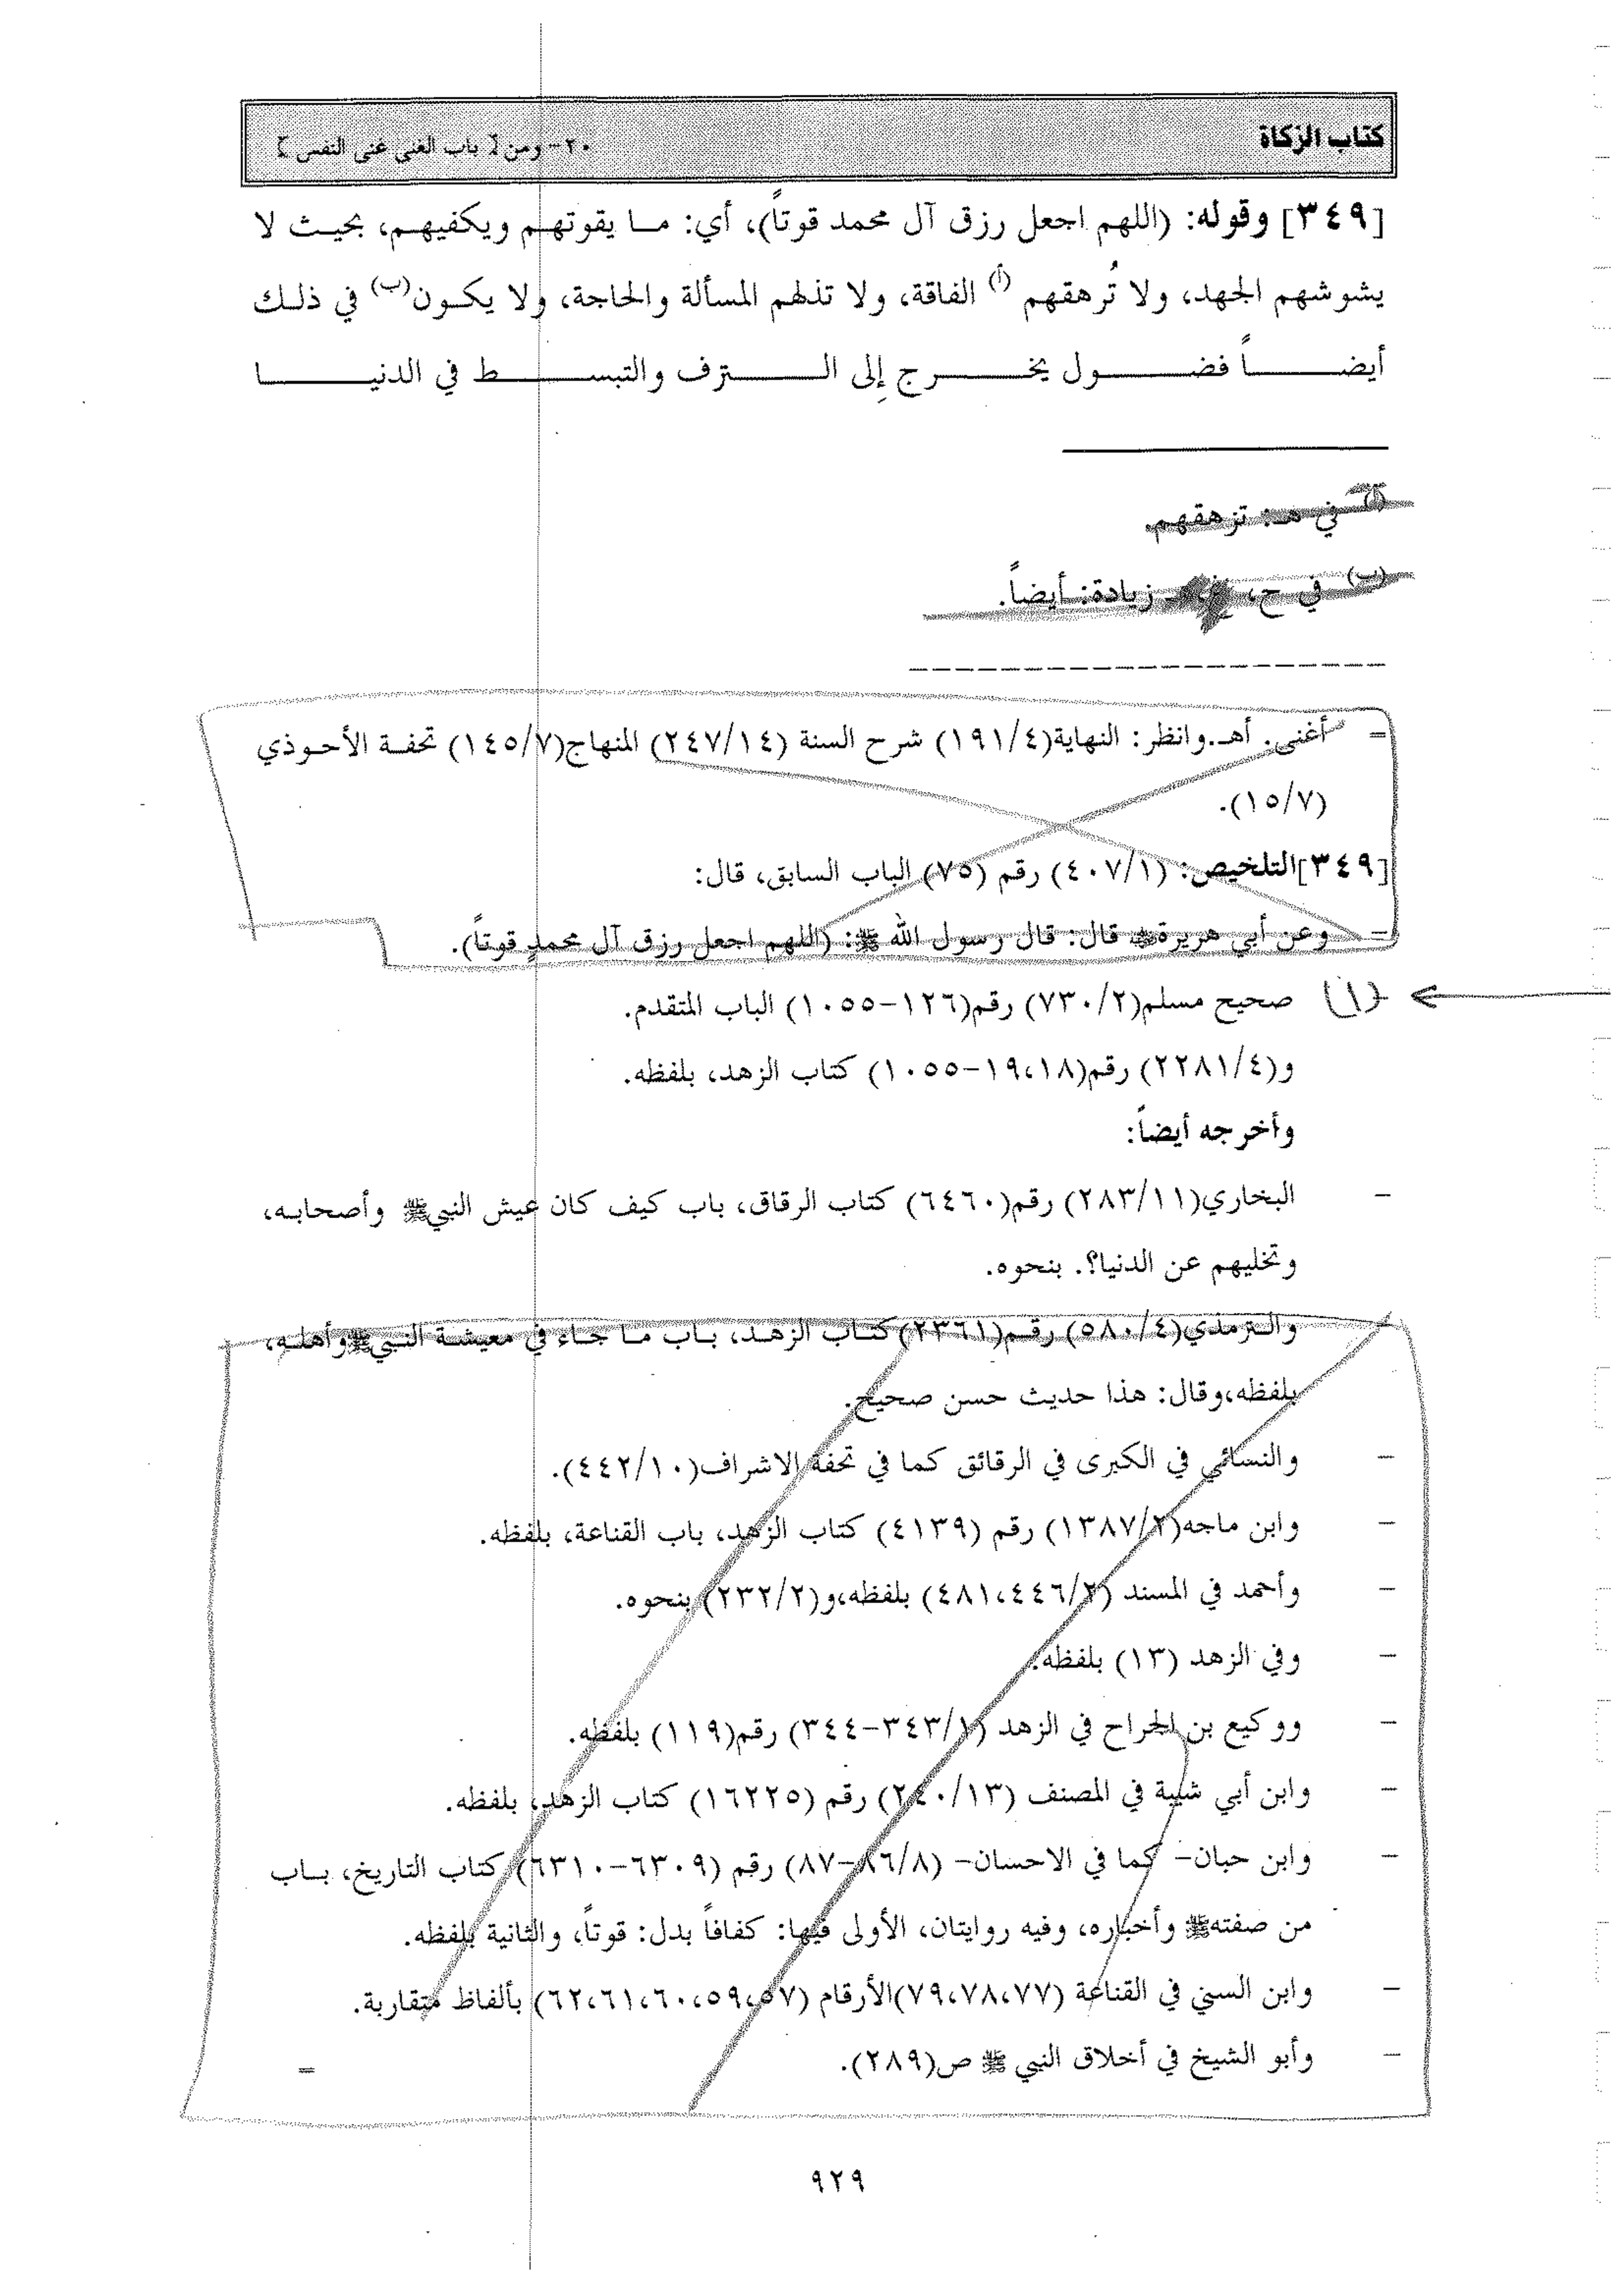 كتاب الزكاة
٢٠- ومن [ باب الغنى غنى النفس ]
[٣٤٩] وقوله: (اللهم اجعل رزق آل محمد قوتاً)، أي: مـا يقوتهـم ويكفيهـم، بحيـث لا
يشوشهم الجهد، ولا تُرهقهم (أ) الفاقة، ولا تذلهم المسألة والحاجة، ولا يكـون(ب) في ذلـك
أيضـاً فضـول يخـرج إلى الـترف والتبسـط في الدنيـا
(أ) في هـ: تزهقهم.
(ب) في ح، زيادة: أيضاً.
= أغنى. أهـ.وانظر: النهاية(١٩١/٤) شرح السنة (٢٤٧/١٤) المنهاج(١٤٥/٧) تحفـة الأحـوذي
(١٥/٧).
[٣٤٩]التلخيص: (٤٠٧/١) رقم (٧٥) الباب السابق، قال:
– وعن أبي هريرةﷺ قال: قال رسول الله ﷺ: (اللهم اجعل رزق آل محمدٍ قوتاً).
(١) صحيح مسلم(٧٣٠/٢) رقم(١٢٦-١٠٥٥) الباب المتقدم.
و(٢٢٨١/٤) رقم(١٩،١٨-١٠٥٥) كتاب الزهد، بلفظه.
وأخرجه أيضاً:
– البخاري(٢٨٣/١١) رقم(٦٤٦٠) كتاب الرقاق، باب كيف كان عيش النبيﷺ وأصحابـه،
وتخليهم عن الدنيا؟. بنحوه.
والـترمذي(٥٨٠/٤) رقـم(٢٣٦١)كتـاب الزهـد، بـاب مـا جـاء في معيشـة النـبيﷺوأهلـه،
بلفظه،وقال: هذا حديث حسن صحيح.
– والنسائي في الكبرى في الرقائق كما في تحفة الاشراف(٤٤٢/١٠).
– وابن ماجه(١٣٨٧/٢) رقم (٤١٣٩) كتاب الزهد، باب القناعة، بلفظه.
– وأحمد في المسند (٤٨١،٤٤٦/٢) بلفظه،و(٢٣٢/٢) بنحوه.
– وفي الزهد (١٣) بلفظه.
– ووكيع بن الجراح في الزهد (٣٤٣/١-٣٤٤) رقم(١١٩) بلفظه.
– وابن أبي شيبة في المصنف (٢٤٠/١٣) رقم (١٦٢٢٥) كتاب الزهد، بلفظه.
– وابن حبان- كما في الاحسان- (٨٦/٨-٨٧) رقم (٦٣٠٩-٦٣١٠) كتاب التاريخ، بـاب
من صفتهﷺ وأخباره، وفيه روايتان، الأولى فيها: كفافاً بدل: قوتاً، والثانية بلفظه.
– وابن السني في القناعة (٧٩،٧٨،٧٧)الأرقام (٦٢،٦١،٦٠،٥٩،٥٧) بألفاظ متقاربة.
– وأبو الشيخ في أخلاق النبي ﷺ ص(٢٨٩).
=
٩٢٩